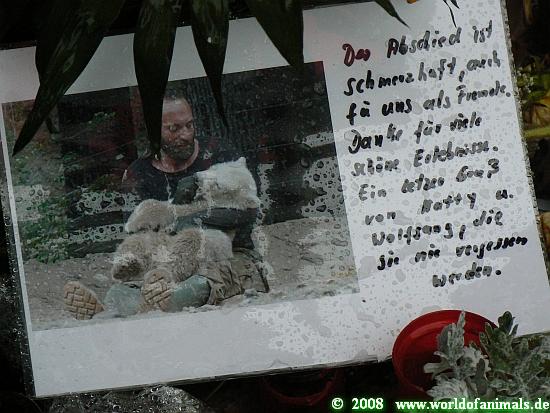 Der Abschied ist
schmerzhaft, auch
für uns als Fremde.
Danke für viele
schöne Erlebnisse.
Ein letzter Gruß
von Hatty u.
Wolfgang, die
Sie nie vergessen
werden.
© 2008 www.worldofanimals.de